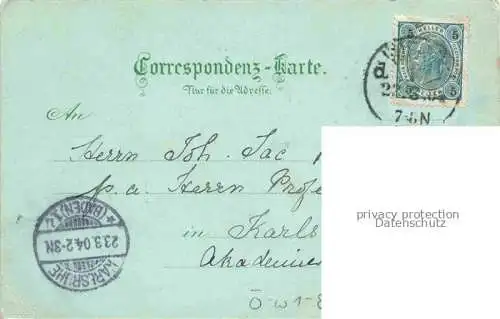 Correspondenz-Karte.
Nur für die Adresse.
5 HELLER 5
22
7-8N
An
Herrn Joh. Jac
p.a Herrn Profe
in Karls
Akademie
KARLSRUHE
23.3.04.2-3N
(BADEN)
privacy protection
Datenschutz
Ö-W1-E